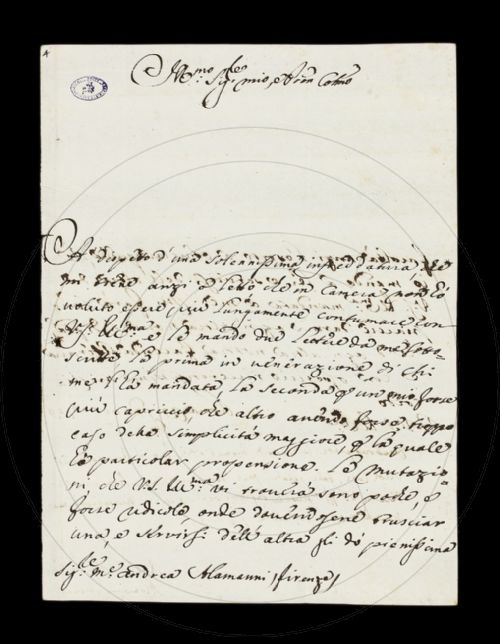 Ill.mo Sig.re mio, e Pron Colmo
A dispetto d'una solennissima infreddatura che
mi tiene anzi a letto che in camera, non ò
voluto essere più lungamente contumace con
V.S. Ill.ma e le mando due lettere da me sotto=
scritte la prima in venerazione di chi
me l'à mandata la seconda p un mio forse
più capriccio, che altro avendo forse troppo
caso della simplicità maggiore, p la quale
ò particolar propensione. Le mutazio=
ni, che V.S. Ill.ma vi troverà sono poche, e
forse ridicole, onde dovendosene brusciar
una, e servirsi dell'altra gli dò pienissima
Sig.re Me. Andrea Alamanni (Firenze)